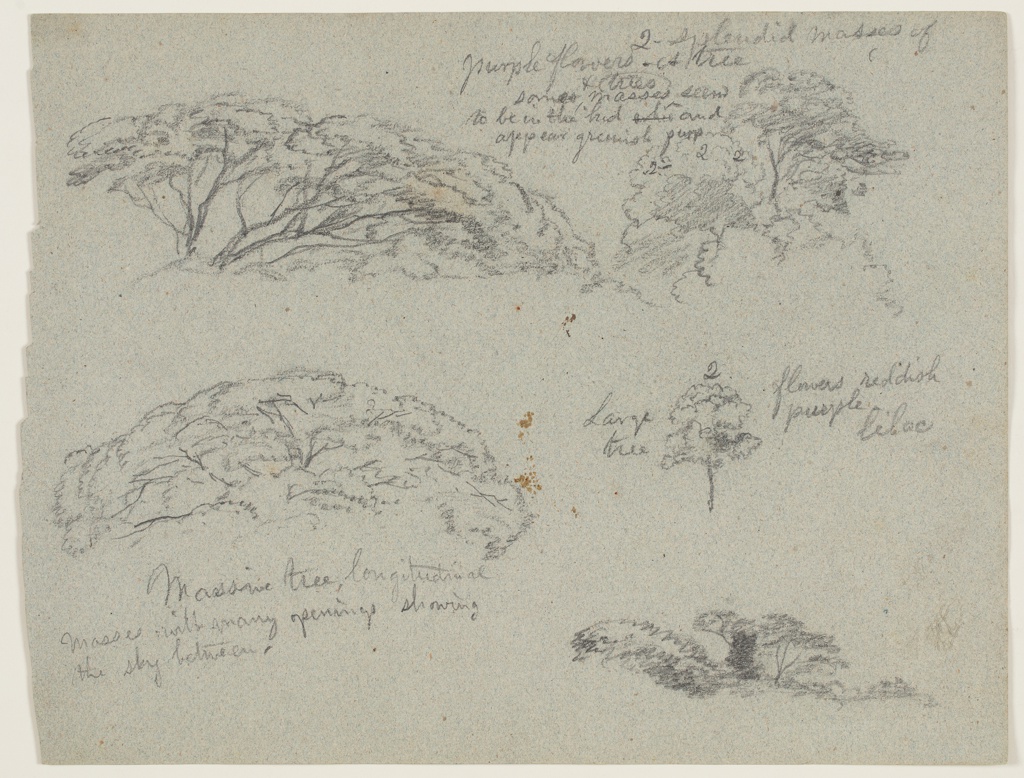 2- splendid masses of
purple flowers - tree
& trees
some masses seem
to be in the bud and
appear greenish purp
2 2 2
2
Large
tree
flowers reddish
purple
lilac
Massive tree, longitudinal
masses with many openings showing
the sky between.